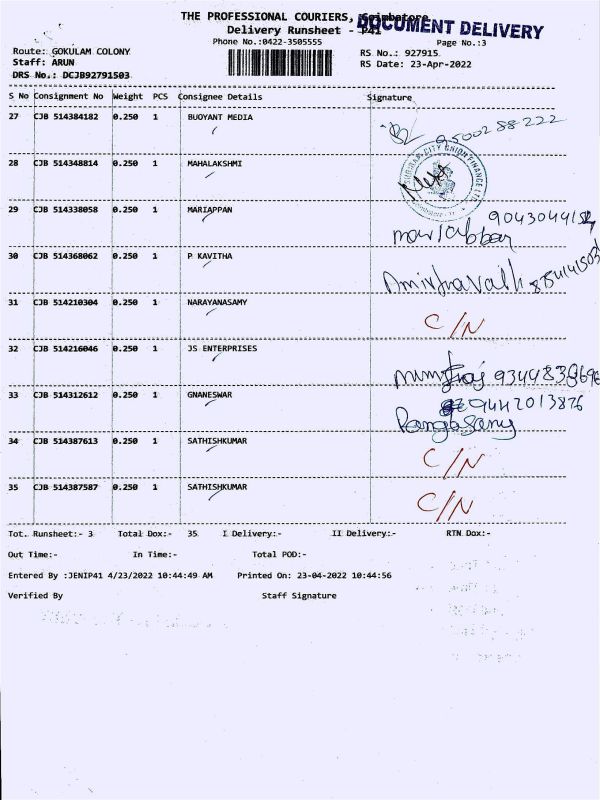 THE PROFESSIONAL COURIERS, Coimbatore
DOCUMENT DELIVERY
Delivery Runsheet - P41
Phone No.:0422-3505555
Page No.:3
Route: GOKULAM COLONY
RS No.: 927915
Staff: ARUN
RS Date: 23-Apr-2022
DRS No.: DCJB92791503
S No Consignment No Weight PCS Consignee Details Signature
27 CJB 514384182 0.250 1 BUOYANT MEDIA
9500288222
28 CJB 514348814 0.250 1 MAHALAKSHMI
CITY UNION FINANCE LTD.
29 CJB 514338058 0.250 1 MARIAPPAN
30 CJB 514368062 0.250 1 P KAVITHA
31 CJB 514210304 0.250 1 NARAYANASAMY C/N
32 CJB 514216046 0.250 1 JS ENTERPRISES
33 CJB 514312612 0.250 1 GNANESWAR
9442013876
34 CJB 514387613 0.250 1 SATHISHKUMAR C/N
35 CJB 514387587 0.250 1 SATHISHKUMAR C/N
Tot. Runsheet:- 3 Total Dox:- 35 I Delivery:- II Delivery:- RTN Dox:-
Out Time:- In Time:- Total POD:-
Entered By :JENIP41 4/23/2022 10:44:49 AM Printed On: 23-04-2022 10:44:56
Verified By Staff Signature